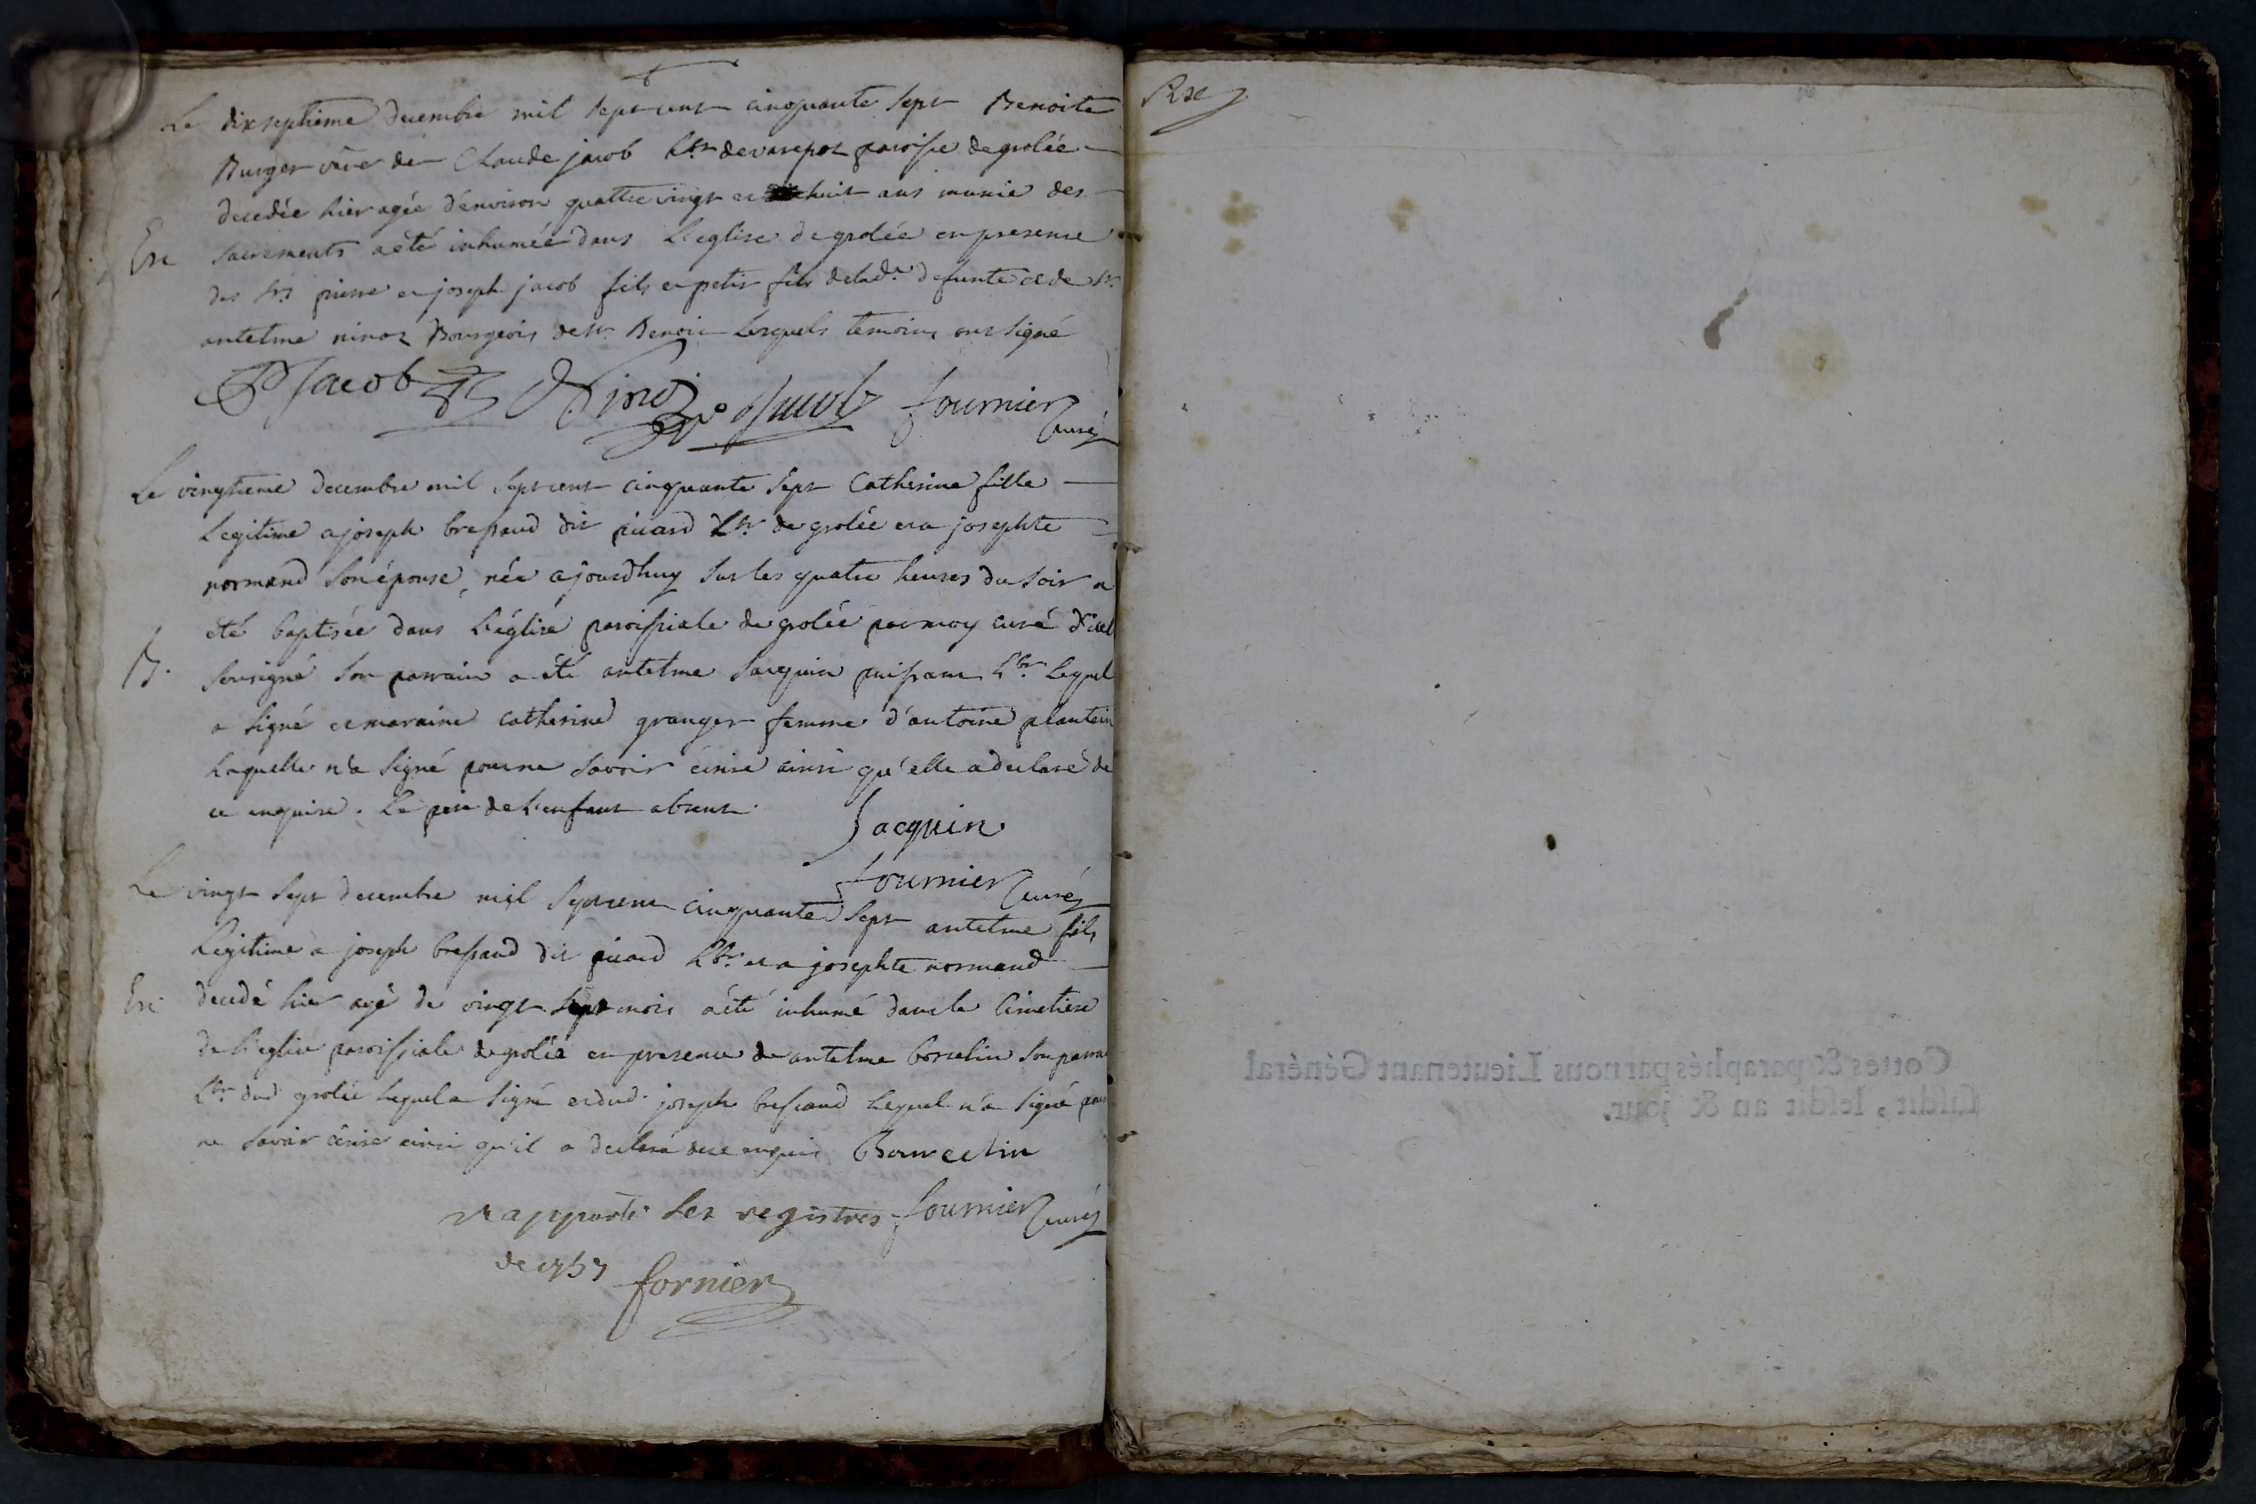 Le dixseptieme decembre mil sept cent cinquante sept Benoite
Burger vēve de Claude jacob hbr devarepoz paroisse degrolée
decedée hier agée d'environ quattre vingt et huit ans munie des
Ere sacrements a été inhumée dans l'eglise degrolée en presence
des Srs pierre et joseph jacob fils et petit fils delade defunte et de Sr
antelme ninoz Bourgeois de St Benoit Lesquels temoins ont signé
PJacob Ninoz Jacob fournier
curé
Le vingtieme decembre mil sept cent cinquante sept Catherine fille
legitime a joseph bressaud dit picard hbr de grolée et a josephte
normand son épouse, née ajourdhuy sur les quatre heures du soir a
été baptisée dans l'église paroissiale de grolée par moy curé
B. sousigné son parrain a été antelme Jacquin puissant hbr lequel
a signé et maraine catherine granger femme d'antoine plantin
laquelle n'a signé pour ne savoir écrire ainsi qu'elle a declaré de
ce enquise. le pere de l'enfant absent
Jacquin
fournier curé
Le vingt sept decembre mil sept cent cinquante sept antelme fils
legitime a joseph bressaud dit picard hbr et a josephte normand
Ere decedé hier agé de vingt sept mois a été inhumé dans le cimetiere
de l'eglise paroissiale degrolée en presence de antelme borcelin son parrain
hbr dud grolée lequel a signé et dud. joseph bressaud lequel n'a signé pour
ne savoir écrire ainsi qu'il a declaré de ce enquis Bourcelin
rapporté les registres fournier curé
de 1757 fornier
Cottes & paraphés par nous Lieutenant Général
susdit, lesdit an & jour.